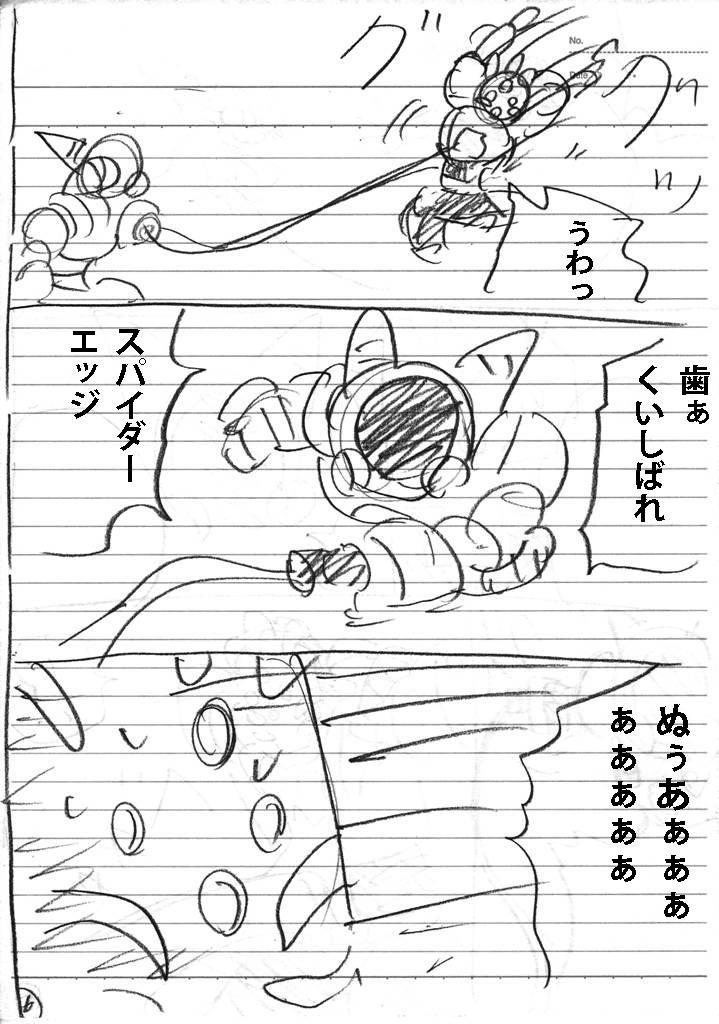 No.
Date
グググッ
うわっ
歯ぁ
くいしばれ
スパイダー
エッジ
ぬぅあぁぁぁ
ぁぁぁぁぁ
6